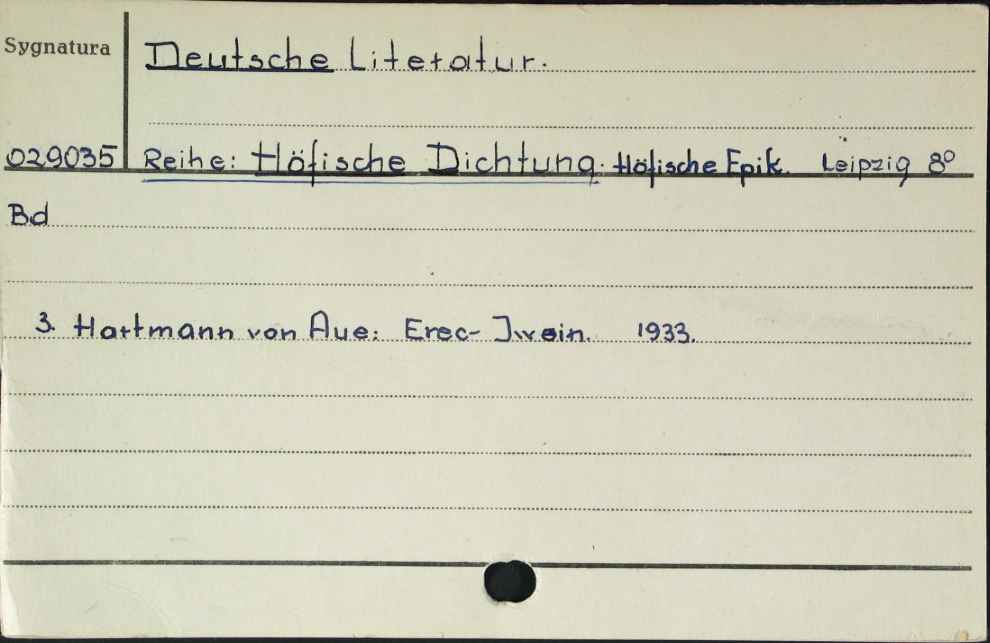 Sygnatura
Deutsche Literatur.
029035 Reihe: Höfische Dichtung. Höfische Epik. Leipzig 8º
Bd
3. Hartmann von Aue: Erec- Iwein. 1933.